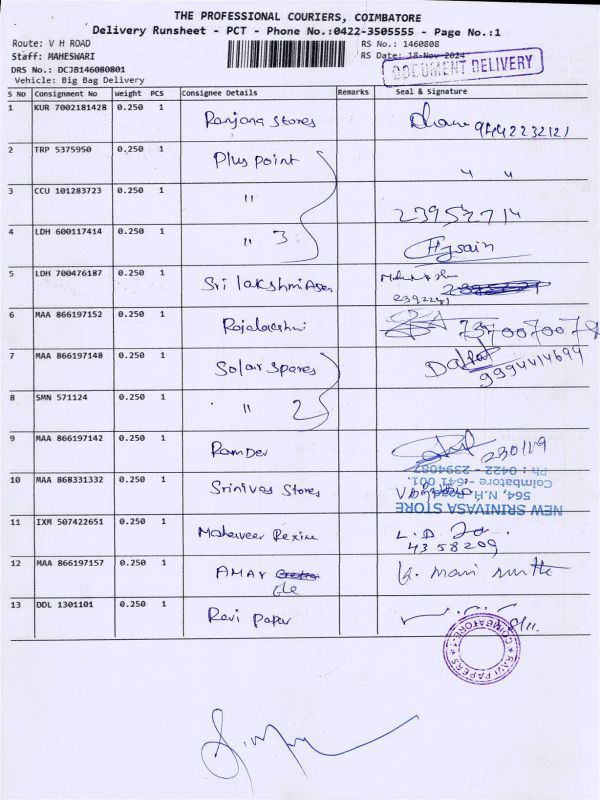 THE PROFESSIONAL COURIERS, COIMBATORE
Delivery Runsheet - PCT - Phone No.:0422-3505555 - Page No.:1
Route: V H ROAD
RS No.: 1460808
Staff: MAHESWARI
RS Date: 18-Nov-2024
DOCUMENT DELIVERY
DRS No.: DCJB146080801
Vehicle: Big Bag Delivery
S No Consignment No Weight PCS Consignee Details Remarks Seal & Signature
1 KUR 7002181428 0.250 1 Ranjana Stores 9442232121
2 TRP 5375950 0.250 1 Plus point " "
3 CCU 101283723 0.250 1 " 23952714
4 LDH 600117414 0.250 1 " 3 Hussain
5 LDH 700476187 0.250 1 Sri lakshmi Agen
2392241
6 MAA 866197152 0.250 1 Rajalakshmi 7370070079
7 MAA 866197148 0.250 1 Solar Spares
9994414699
8 SMN 571124 0.250 1 " 2
9 MAA 866197142 0.250 1 Ramdev 230119
10 MAA 868331332 0.250 1 Srinivas Stores
NEW SRINIVASA STORE
564, N.H. Road,
Coimbatore - 641 001.
Ph : 0422 - 2394087
11 IXM 507422651 0.250 1 Mahaveer Rexine
4358209
12 MAA 866197157 0.250 1 AMAR
Gle
13 DDL 1301101 0.250 1 Ravi paper
RAVI PAPERS
COIMBATORE-1